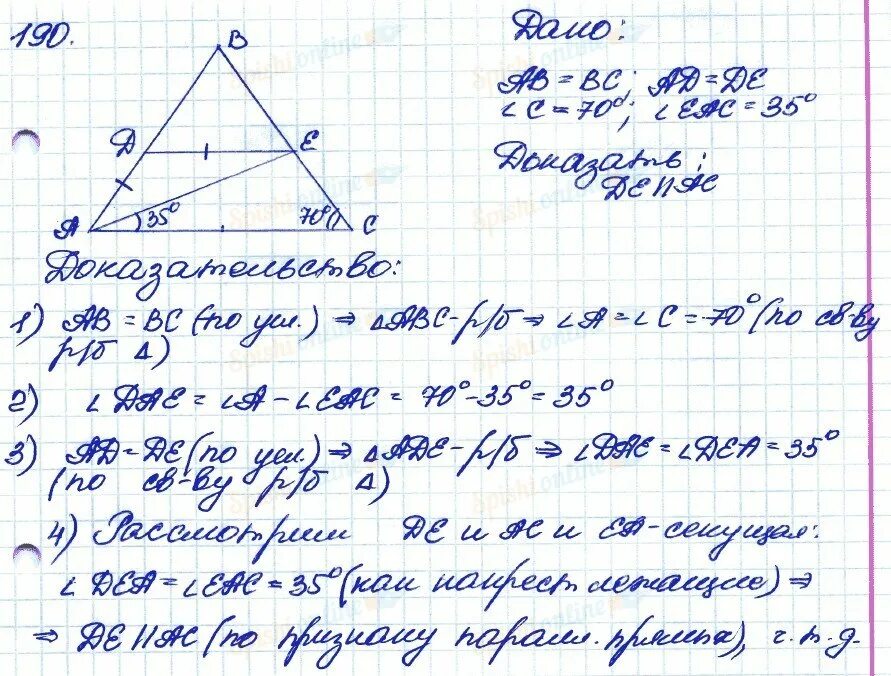 190.
B
D
E
A
35°
70°
C
Дано:
AB = BC; AD = DE
∠C = 70°; ∠EAC = 35°
Доказать:
DE || AC
Доказательство:
1) AB = BC (по усл.) ⇒ △ABC - р/б ⇒ ∠A = ∠C = 70° (по св-ву
р/б △)
2) ∠DAE = ∠A - ∠EAC = 70° - 35° = 35°
3) AD = DE (по усл.) ⇒ △ADE - р/б ⇒ ∠DAE = ∠DEA = 35°
(по св-ву р/б △)
4) Рассмотрим DE и AC и EA - секущая:
∠DEA = ∠EAC = 35° (как накрест лежащие) ⇒
⇒ DE || AC (по признаку паралл. прямых), ч.т.д.